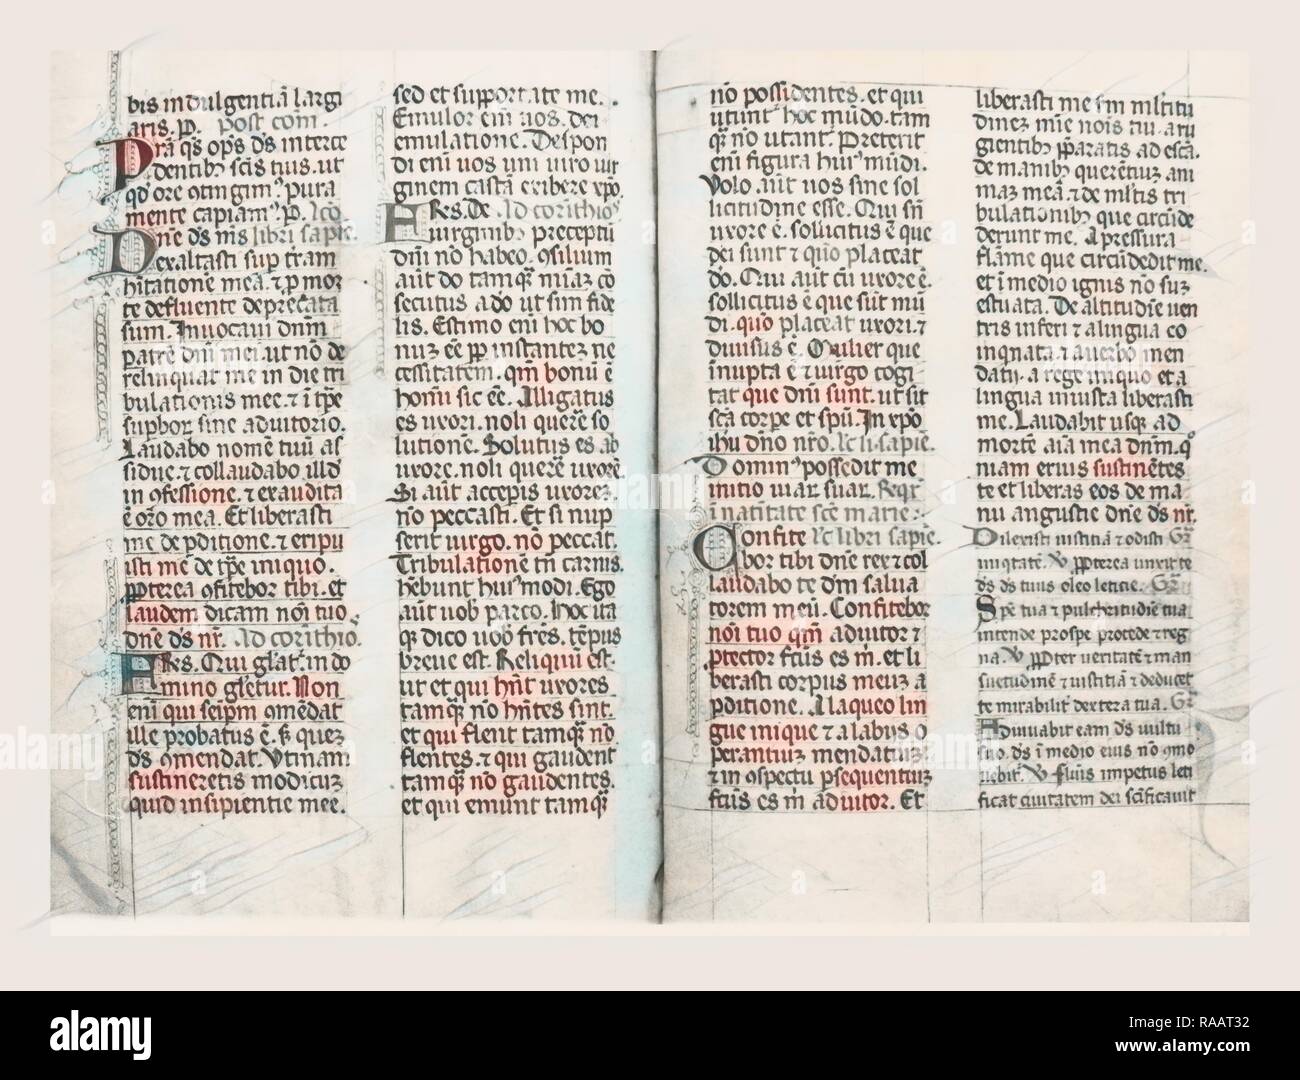 bis indulgentiā largi
aris. p. post com.
Pra q̄s op̄s d̄s interce
dentibꝰ sc̄is tuis. ut
qđ ore ꝯtingimꝰ pura
mente capiamꝰ. p. lc̄o
Dn̄e d̄s m̄s libri sapīe.
exaltasti sup̄ tram
hītationē mea. ⁊ p̄ mor
te defluente dep̄cata
sum. Inuocaui dn̄m
patrē dn̄i mei. ut nō de
relinquat me in die tri
bulationis mee. ⁊ ī tp̄e
supboꝝ sine adiutorio.
Laudabo nomē tuū as
sidue. ⁊ collaudabo illđ
in ꝯfessione. ⁊ exaudita
ē or̄o mea. Et liberasti
me de pditione. ⁊ eripu
isti me de tp̄e iniquo.
ꝓpterea ꝯfitebor tibi. et
laudem dicam nōi tuo
dn̄e d̄s nr̄. Ad corinthio.
FRes. Qui gl̄at. in do
mino gl̄etur. Non
eni qui seipm̄ ꝯmēdat
ille probatus ē. s; quez
d̄s ꝯmendat. Vtinam
sustineretis modicuz
quid insipientie mee.
sed et supportate me.
Emulor eni uos. dei
emulatione. Despon
di eni uos uni uiro uir
ginem castā exibere xp̄o.
FRes. De Ad corinthioꝰ
uirginibꝰ preceptū
dn̄i nō habeo. ꝯsilium
aūt do tamq̄ mīaꝫ co
secutus a dō ut sim fide
lis. Estimo eni hoc bo
nuz ēe ꝓp instantez ne
cessitatem. qm̄ bonū ē
homi sic ēe. Alligatus
es uxori. noli querē so
lutionē. Solutus es ab
uxore. noli querē uxorē.
Si aūt accepis uxorez.
nō peccasti. Et si nup
serit uirgo. nō peccat.
Tribulationē tn̄ carnis.
hēbunt huiꝰmodi. Ego
aūt uob parco. hoc ita
q̄ dico uob fr̄es. tēpus
breue est. Reliquū est.
ut et qui hn̄t uxores
tamq̄ nō hn̄tes sint.
et qui flent tamq̄ nō
flentes. ⁊ qui gaudent
tamq̄ nō gaudentes.
et qui emunt tamq̄
nō possidentes. et qui
utunt hoc mūdo. tam
q̄ nō utant. Preterit
eni figura huiꝰ mūdi.
Volo aūt uos sine sol
licitudine esse. Qui sn̄
uxore ē. sollicitus ē que
dei sunt ⁊ quō placeat
dō. Qui aūt cū uxore ē.
sollicitus ē que sūt mū
di. quō placeat uxori. ⁊
diuisus ē. Mulier que
īnupta ē ⁊ uirgo cogi
tat que dn̄i sunt. ut sit
sc̄a corpe et spū. In xp̄o
ihu dn̄o nr̄o. lc̄ li. sapīe.
Dominꝰ possedit me
initio uiaꝝ suaꝝ. Reqr̄
ī natitate sc̄e marie.
Confite lc̄ libri sapīe.
bor tibi dn̄e rex ⁊ col
laudabo te dm̄ salua
torem meū. Confitebor
nōi tuo qm̄ adiutor ⁊
ptector fctūs es m̄. et li
berasti corpus meuz a
pditione. A laqueo lin
gue inique ⁊ a labiis o
perantiuz mendatiuz
⁊ in ꝯspectu psequentiuz
fctūs es m̄ adiutor. Et
liberasti me sm̄ ml̄titu
dinez mīe nois tui. a ru
gientibꝰ pparatis ad escā.
de manibꝰ querētiuz ani
maz meā. ⁊ de ml̄tis tri
bulationibꝰ que circūde
derunt me. A pressura
flāme que circūdedit me.
et ī medio ignis nō suz
estuata. De altitudīe uen
tris inferi ⁊ a lingua co
inqnata. ⁊ a uerbo men
datii. a rege iniquo et a
lingua iniusta liberasti
me. Laudabit usq̄ ad
mortē aīa mea dn̄m. qꝰ
niam eruis sustinētes
te et liberas eos de ma
nu angustie dn̄e d̄s nr̄.
Dilexisti iustitiā ⁊ odisti Gr̄
iniqtatē. V ꝓpterea unxit te
d̄s d̄s tuus oleo letitie. Gr̄
Spē tua ⁊ pulchritudīe tua
intende prospe procede ⁊ reg
na. V ꝓpter ueritatē ⁊ man
suetudinē ⁊ iustitiā ⁊ deducet
te mirabilit dextera tua. Gr̄
Adiuuabit eam d̄s uultu
suo. d̄s ī medio eius nō ꝯmo
uebit. V fluīs impetus leti
ficat ciuitatem dei sc̄ificauit
alamy
Image ID: RAAT32
www.alamy.com